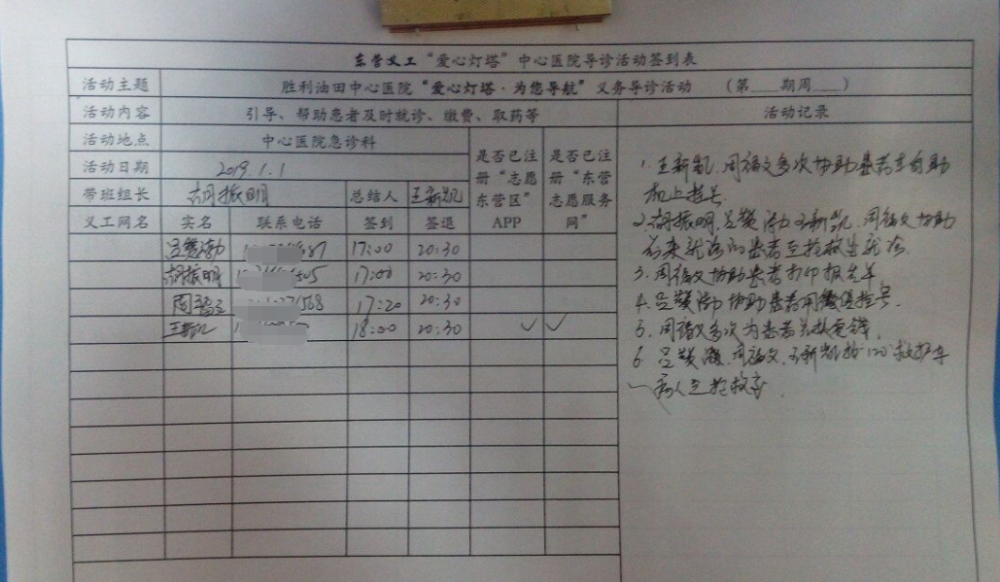 东营义工“爱心灯塔”中心医院导诊活动签到表
活动主题 胜利油田中心医院“爱心灯塔·为您导航”义务导诊活动 （第___期周___）
活动内容 引导、帮助患者及时就诊、缴费、取药等 活动记录
活动地点 中心医院急诊科 是否已注册“志愿东营区”APP 是否已注册“东营志愿服务网”
活动日期 2019.1.1
带班组长 胡振明 总结人 王新凯
义工网名 实名 联系电话 签到 签退
17:00 20:30
胡振明 17:00 20:30
周福文 17:20 20:30
王新凯 18:00 20:30 ✓ ✓
1. 王新凯、周福文多次协助患者在自助
机上挂号
2. 胡振明、吕 王新凯、周福文协助
前来就诊的患者至抢救室就诊
3. 周福文协助患者打印报告单
4. 吕 协助患者用微信挂号
5. 周福文多次为患者兑换零钱
6. 吕 周福文、王新凯抬120救护车
病人至抢救室